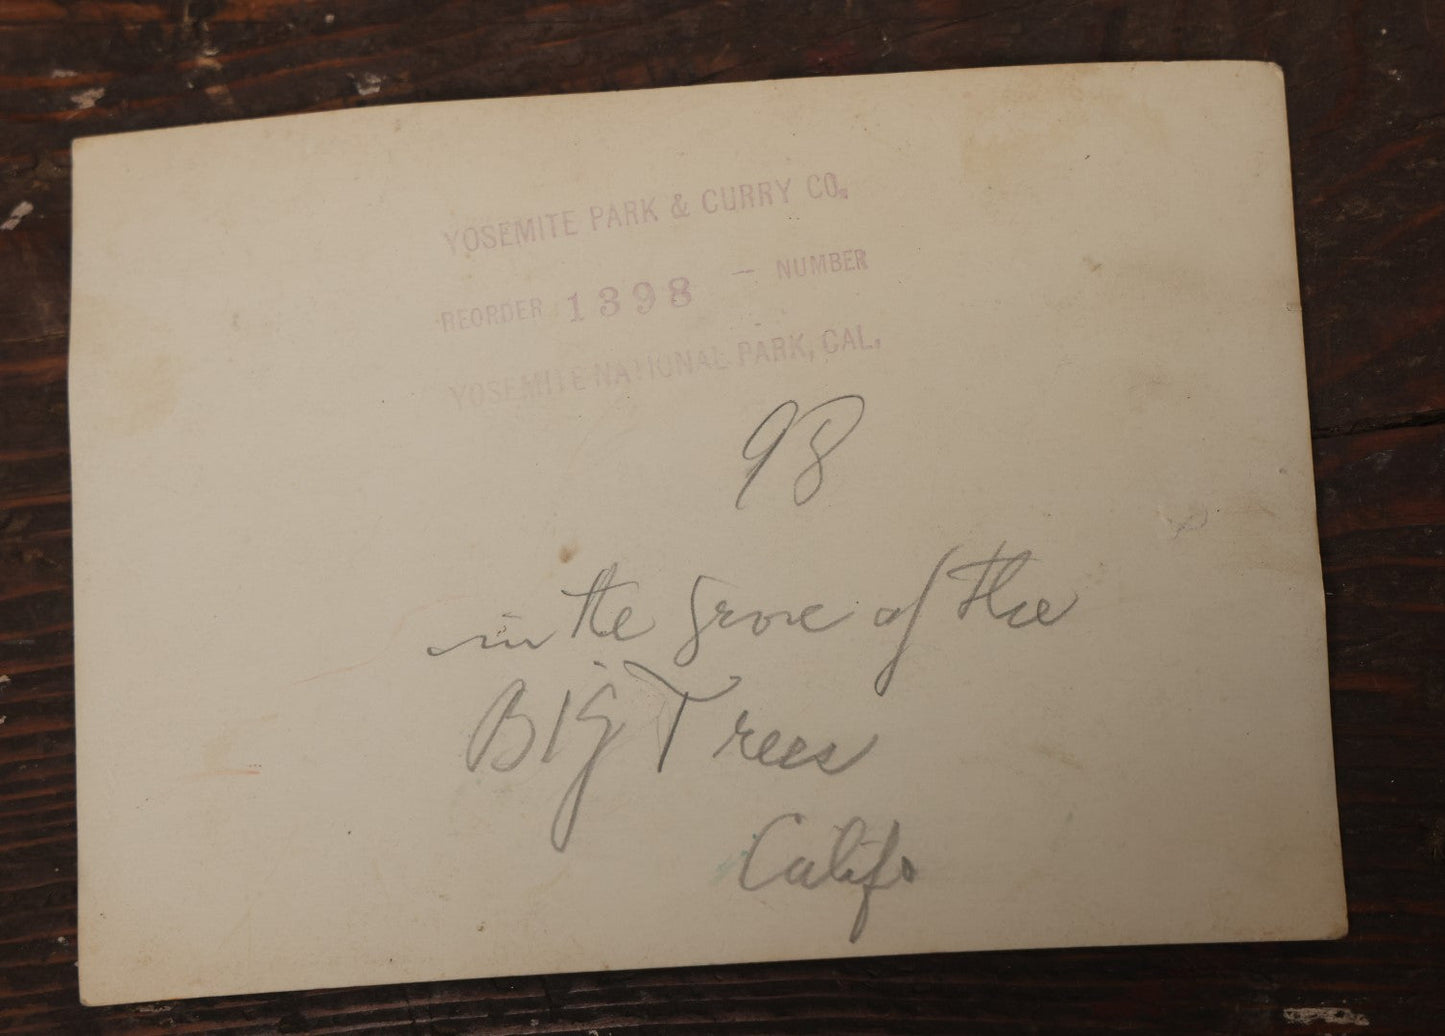 YOSEMITE PARK & CURRY CO.
REORDER 1398 — NUMBER
YOSEMITE NATIONAL PARK, CAL.
98
in the grove of the
BIg Trees
Calif.